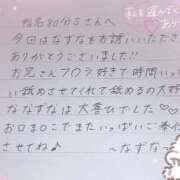 指名80分Sさんへ
今回はなずなをお誘いいただき
ありがとうございます!
お兄さんフロラ好きで時間いっ
い舐めさせてくれて舐めるの大好
ななずなは大喜びでした♡♡
お口まんこでまたいっぱいご奉
させてね♪
～なずな～
私を選んでく
あり